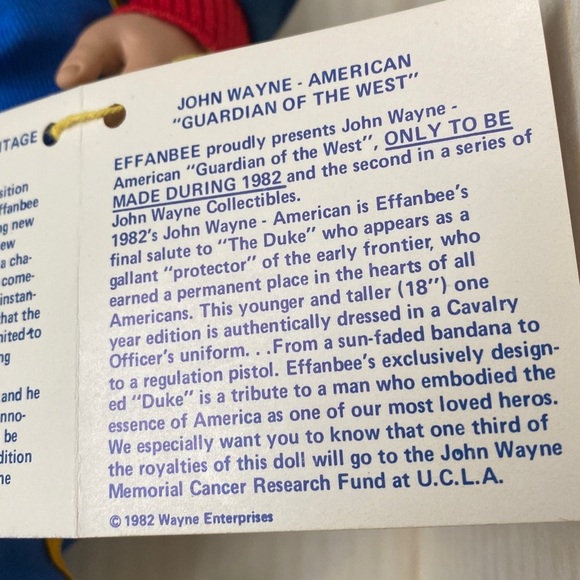 ITAGE
sition
ffanbee
g new
ew
a cha-
come-
instan-
hat the
nited to
ng
and he
nno-
be
dition
ne
JOHN WAYNE - AMERICAN
"GUARDIAN OF THE WEST"
EFFANBEE proudly presents John Wayne -
American "Guardian of the West", ONLY TO BE
MADE DURING 1982 and the second in a series of
John Wayne Collectibles.
1982's John Wayne - American is Effanbee's
final salute to "The Duke" who appears as a
gallant "protector" of the early frontier, who
earned a permanent place in the hearts of all
Americans. This younger and taller (18") one
year edition is authentically dressed in a Cavalry
Officer's uniform. . .From a sun-faded bandana to
to a regulation pistol. Effanbee's exclusively design-
ed "Duke" is a tribute to a man who embodied the
essence of America as one of our most loved heros.
We especially want you to know that one third of
the royalties of this doll will go to the John Wayne
Memorial Cancer Research Fund at U.C.L.A.
© 1982 Wayne Enterprises